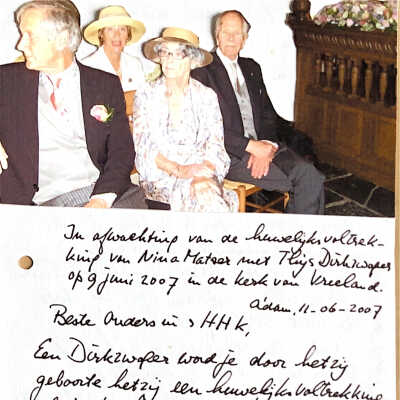 In afwachting van de huwelijksvoltrek-
king van Nina Matser met Thijs Dirkzwager
op 9 juni 2007 in de kerk van Vreeland.
adam, 11-06-2007
Beste Anders in 's HHK,
Een Dirkzwager word je door hetzij
geboorte hetzij een huwelijksvoltrekking